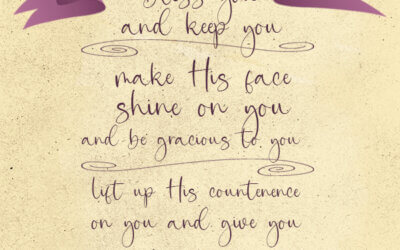 bless you
and keep you
make His face
shine on you
and be gracious to you
lift up His countenence
on you and give you